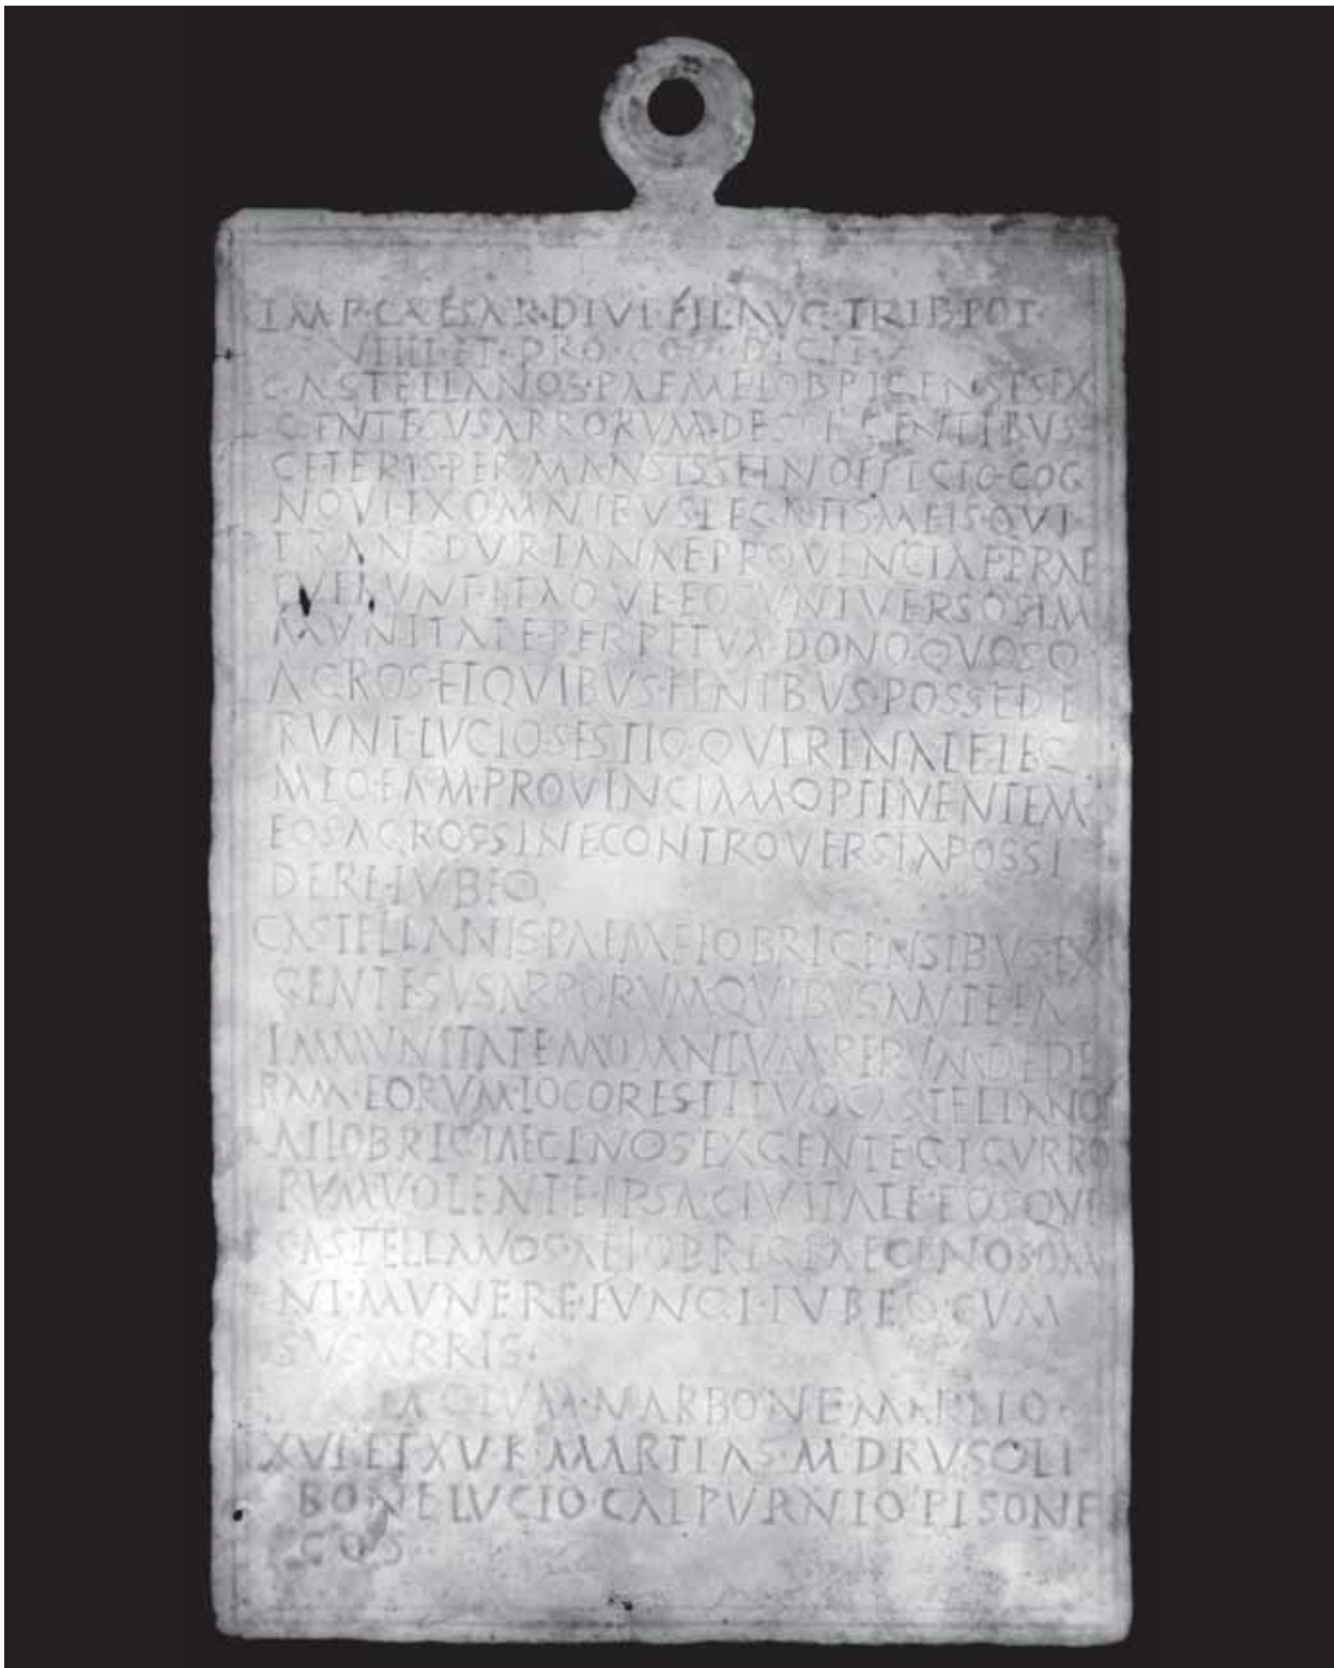 IMP·CAESAR·DIVI·FIL·AVG·TRIB·POT·
VIIII·ET·PRO·COS·DICIT·
CASTELLANOS·PAEMEIOBRIGENSES·EX
GENTE·SVSARRORVM·DESCISCENTIBVS
CETERIS·PERMANSISSE·IN·OFFICIO·COG
NOVI·EX·OMNIBVS·LEGATIS·MEIS·QVI·
TRANSDVRIANAE·PROVINCIAE·PRAE
FVERVNT·ITAQVE·EOS·VNIVERSOS·IM
MVNITATE·PERPETVA·DONO·QVOSQ
AGROS·ET·QVIBVS·FINIBVS·POSSEDE
RVNT·LVCIO·SESTIO·QVIRINALE·LEG
MEO·EAM·PROVINCIAM·OPTINENTEM·
EOS·AGROS·SINE·CONTROVERSIA·POSSI
DERE·IVBEO
CASTELLANIS·PAEMEIOBRIGENSIBVS·EX
GENTE·SVSARRORVM·QVIBVS·ANTE·EA
IMMVNITATEM·OMNIVM·RERVM·DEDE
RAM·EORVM·LOCO·RESTITVO·CASTELLANOS
AIIOBRIGIAECINOS·EX·GENTE·GIGVRRO
RVM·VOLENTE·IPSA·CIVITATE·EOSQVE
CASTELLANOS·AIIOBRIGIAECINOS·OM
NI·MVNERE·FVNGI·IVBEO·CVM
SVSARRIS·
ACTVM·NARBONE·MARTIO·
XVI·ET·XV·K·MARTIAS·M·DRVSO·LI
BONE·LVCIO·CALPVRNIO·PISONE
COS